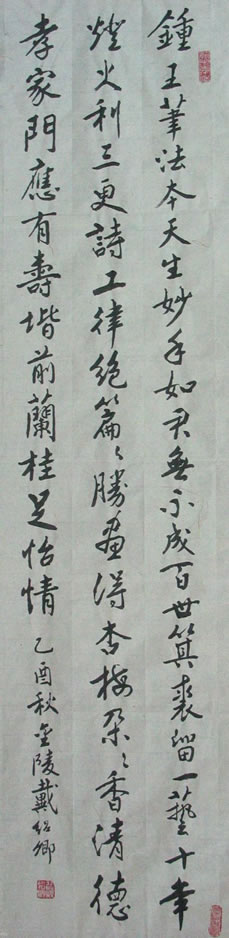 鍾王筆法本天生妙手如君無不成百世箕裘留一藝十年
燈火利三更詩工律絕篇〻勝畫得杏梅朶〻香清德
孝家門應有壽堦前蘭桂足怡情
乙酉秋金陵戴紹卿